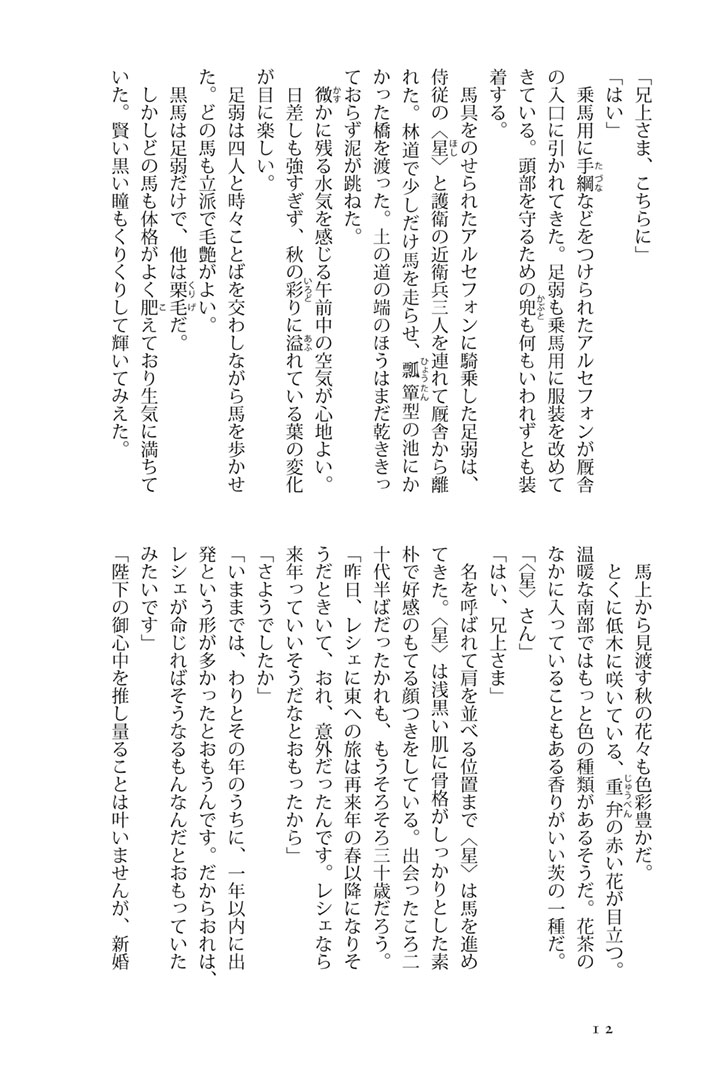 「兄上さま、こちらに」
「はい」
　乗馬用に手綱などをつけられたアルセフォンが厩舎
の入口に引かれてきた。足弱も乗馬用に服装を改めて
きている。頭部を守るための兜も何もいわれずとも装
着する。
　馬具をのせられたアルセフォンに騎乗した足弱は、
侍従の〈星〉と護衛の近衛兵三人を連れて厩舎から離
れた。林道で少しだけ馬を走らせ、瓢箪型の池にか
かった橋を渡った。土の道の端のほうはまだ乾ききっ
ておらず泥が跳ねた。
　微かに残る水気を感じる午前中の空気が心地よい。
　日差しも強すぎず、秋の彩りに溢れている葉の変化
が目に楽しい。
　足弱は四人と時々ことばを交わしながら馬を歩かせ
た。どの馬も立派で毛艶がよい。
　黒馬は足弱だけで、他は栗毛だ。
　しかしどの馬も体格がよく肥えており生気に満ちて
いた。賢い黒い瞳もくりくりして輝いてみえた。
　馬上から見渡す秋の花々も色彩豊かだ。
　とくに低木に咲いている、重弁の赤い花が目立つ。
温暖な南部ではもっと色の種類があるそうだ。花茶の
なかに入っていることもある香りがいい茨の一種だ。
「〈星〉さん」
「はい、兄上さま」
　名を呼ばれて肩を並べる位置まで〈星〉は馬を進め
てきた。〈星〉は浅黒い肌に骨格がしっかりとした素
朴で好感のもてる顔つきをしている。出会ったころ二
十代半ばだったかれも、もうそろそろ三十歳だろう。
「昨日、レシェに東への旅は再来年の春以降になりそ
うだときいて、おれ、意外だったんです。レシェなら
来年っていいそうだなとおもったから」
「さようでしたか」
「いままでは、わりとその年のうちに、一年以内に出
発という形が多かったとおもうんです。だからおれは、
レシェが命じればそうなるもんなんだとおもっていた
みたいです」
「陛下の御心中を推し量ることは叶いませんが、新婚
12